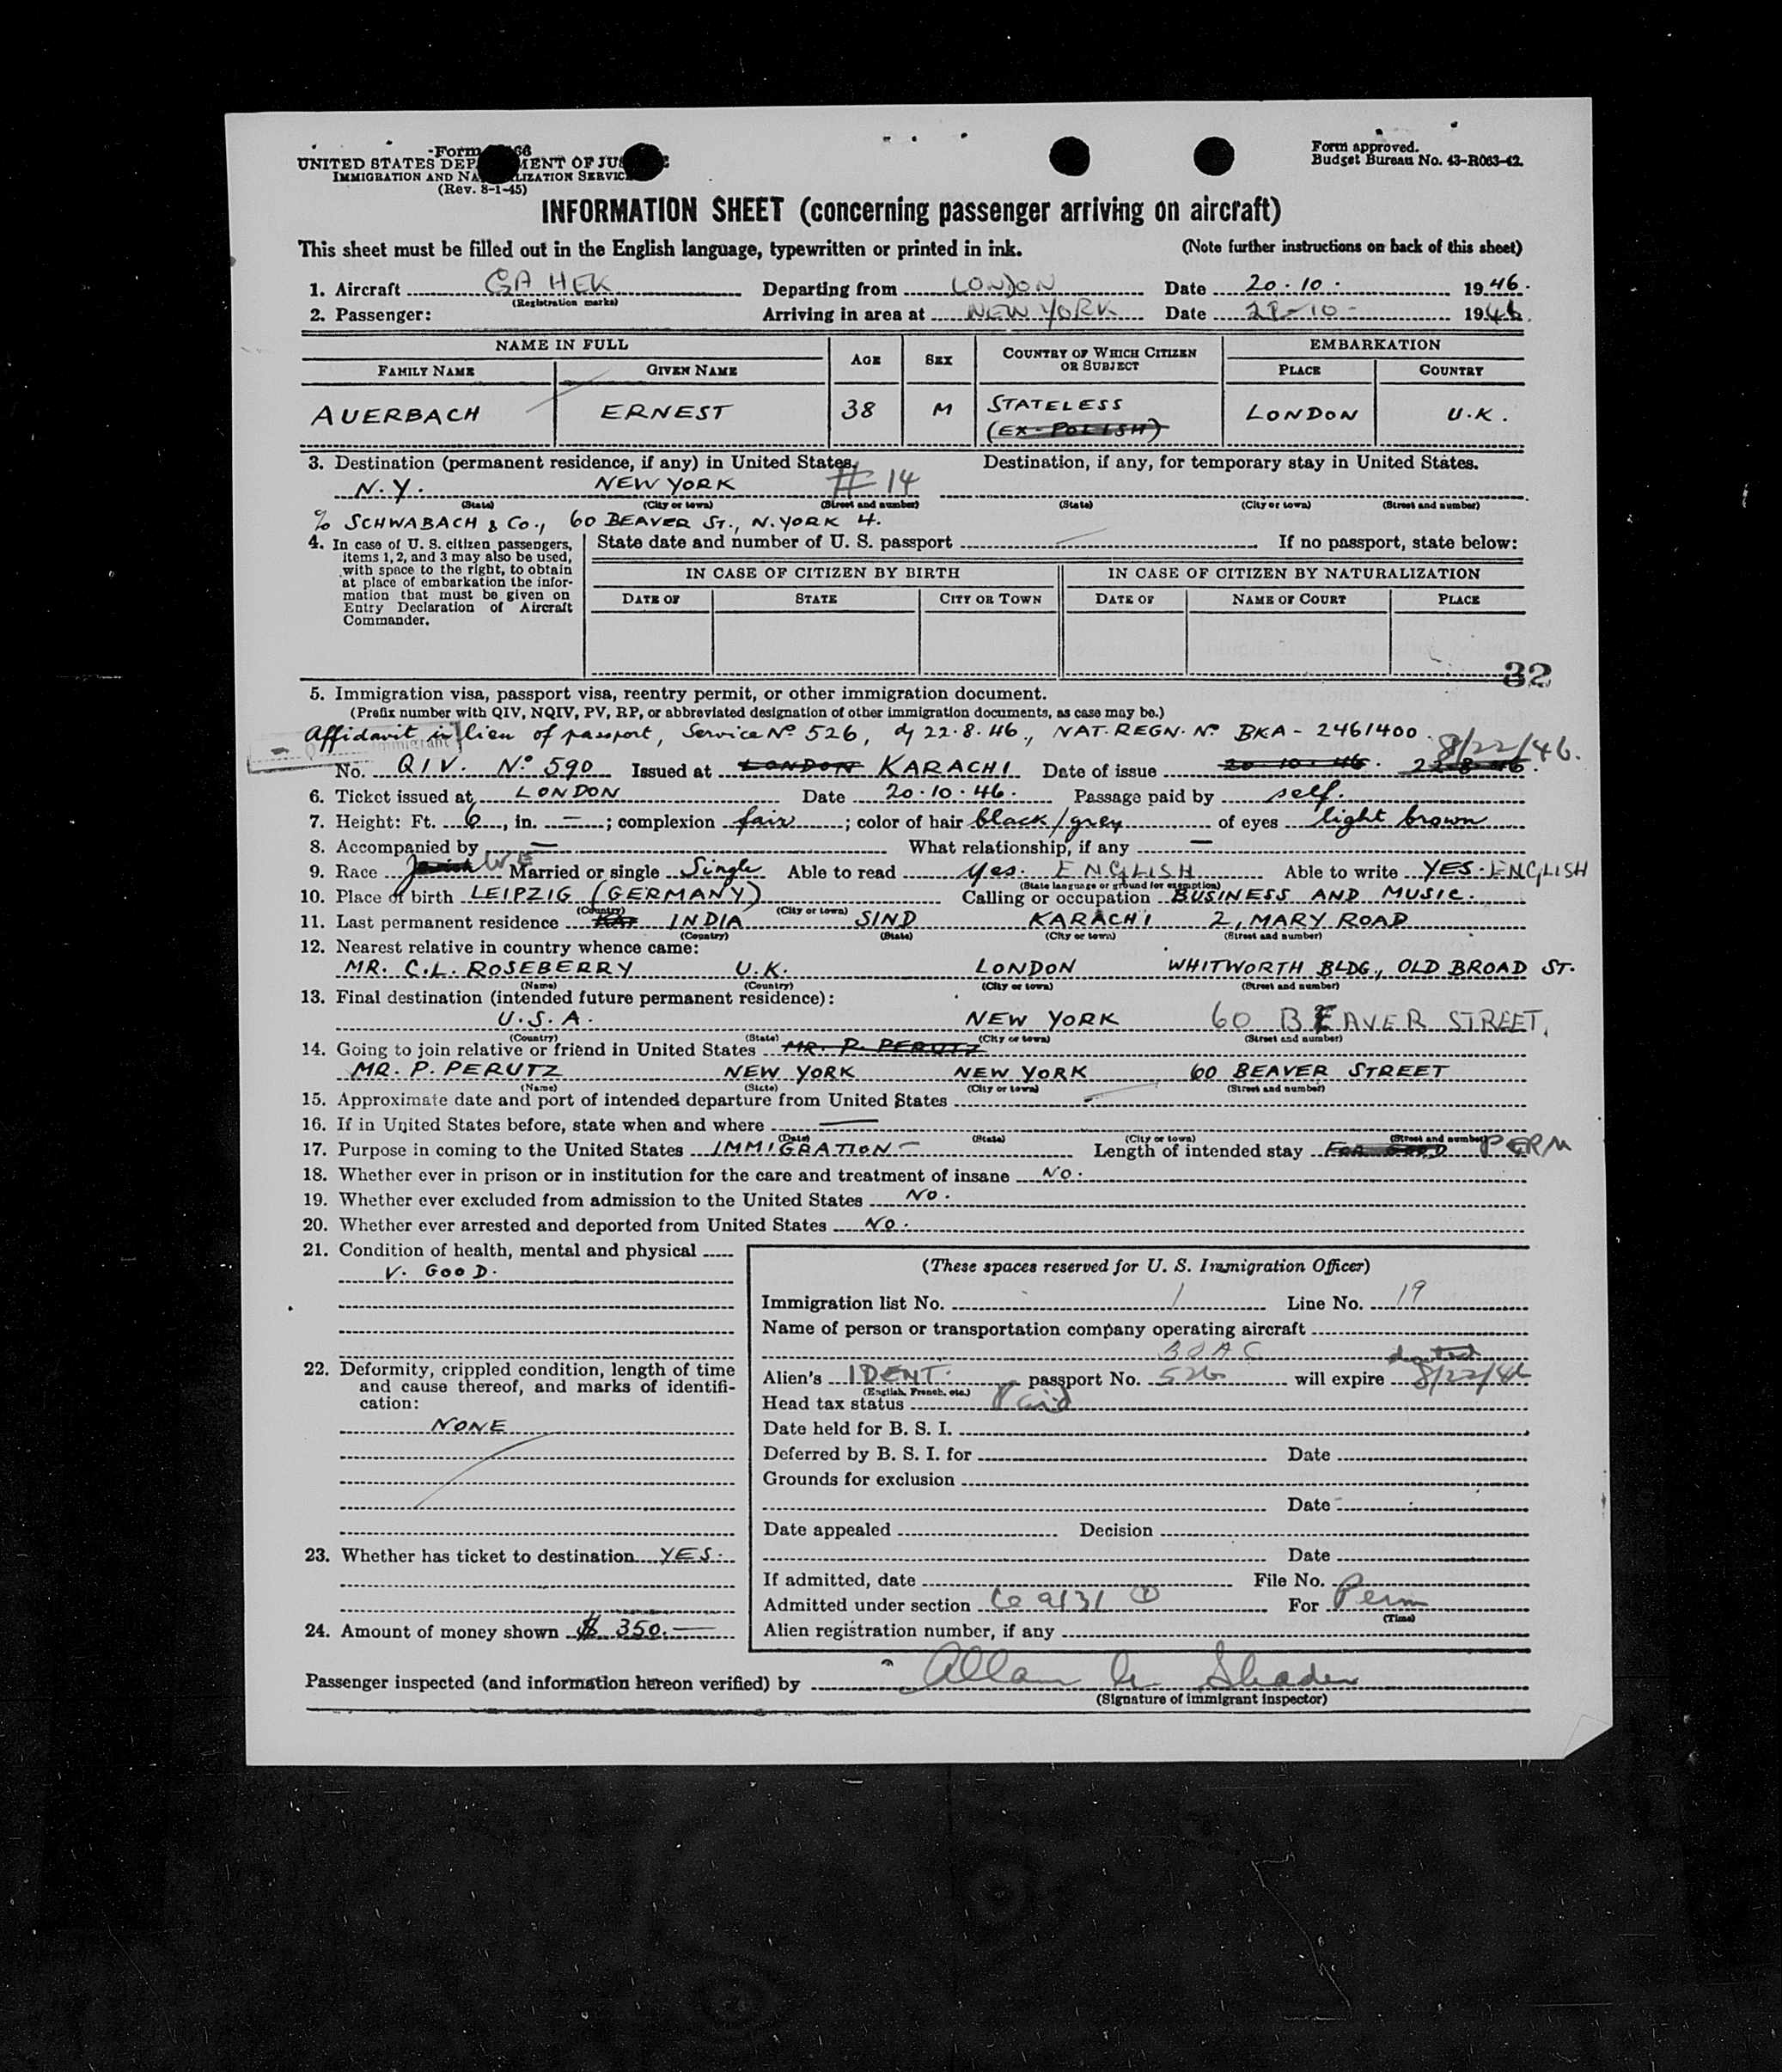 Form 66
UNITED STATES DEP MENT OF JUS
IMMIGRATION AND NA LIZATION SERVIC
(Rev. 8-1-45)
Form approved.
Budget Bureau No. 43-R063-42.
INFORMATION SHEET (concerning passenger arriving on aircraft)
This sheet must be filled out in the English language, typewritten or printed in ink. (Note further instructions on back of this sheet)
1. Aircraft GA HEK Departing from LONDON Date 20.10. 1946.
(Registration marks)
2. Passenger: Arriving in area at NEW YORK Date 21-10- 1946.
NAME IN FULL AGE SEX COUNTRY OF WHICH CITIZEN OR SUBJECT EMBARKATION
FAMILY NAME GIVEN NAME PLACE COUNTRY
AUERBACH ERNEST 38 M STATELESS LONDON U.K.
(EX-POLISH)
3. Destination (permanent residence, if any) in United States. Destination, if any, for temporary stay in United States.
N.Y. NEW YORK # 14
(State) (City or town) (Street and number) (State) (City or town) (Street and number)
% SCHWABACH & Co., 60 BEAVER ST., N.YORK 4.
4. In case of U. S. citizen passengers, items 1, 2, and 3 may also be used, with space to the right, to obtain at place of embarkation the information that must be given on Entry Declaration of Aircraft Commander.
State date and number of U. S. passport If no passport, state below:
IN CASE OF CITIZEN BY BIRTH IN CASE OF CITIZEN BY NATURALIZATION
DATE OF STATE CITY OR TOWN DATE OF NAME OF COURT PLACE
32
5. Immigration visa, passport visa, reentry permit, or other immigration document.
(Prefix number with QIV, NQIV, PV, RP, or abbreviated designation of other immigration documents, as case may be.)
Affidavit in lieu of passport, Service No 526, of 22.8.46., NAT. REGN. No BKA - 2461400.
8/22/46.
No. QIV. No. 590 Issued at LONDON KARACHI Date of issue 20.10.46. 22.8.46.
6. Ticket issued at LONDON Date 20.10.46. Passage paid by self.
7. Height: Ft. 6, in. —; complexion fair; color of hair black/grey of eyes light brown
8. Accompanied by — What relationship, if any —
9. Race Jewish WE Married or single Single Able to read yes. ENGLISH Able to write YES. ENGLISH
(State language or ground for exemption)
10. Place of birth LEIPZIG (GERMANY) Calling or occupation BUSINESS AND MUSIC.
(Country) (City or town)
11. Last permanent residence KAR INDIA SIND KARACHI 2, MARY ROAD
(Country) (State) (City or town) (Street and number)
12. Nearest relative in country whence came:
MR. C.L. ROSEBERRY U.K. LONDON WHITWORTH BLDG., OLD BROAD ST.
(Name) (Country) (City or town) (Street and number)
13. Final destination (intended future permanent residence):
U.S.A. NEW YORK 60 BEAVER STREET,
(Country) (State) (City or town) (Street and number)
14. Going to join relative or friend in United States MR. P. PERUTZ
MR. P. PERUTZ NEW YORK NEW YORK 60 BEAVER STREET
(Name) (State) (City or town) (Street and number)
15. Approximate date and port of intended departure from United States
16. If in United States before, state when and where —
(Date) (State) (City or town) (Street and number)
17. Purpose in coming to the United States IMMIGRATION - Length of intended stay FOR GOOD PERM
18. Whether ever in prison or in institution for the care and treatment of insane NO.
19. Whether ever excluded from admission to the United States NO.
20. Whether ever arrested and deported from United States NO.
21. Condition of health, mental and physical
V. GOOD.
22. Deformity, crippled condition, length of time and cause thereof, and marks of identification:
NONE
23. Whether has ticket to destination YES.
24. Amount of money shown $ 350.—
(These spaces reserved for U. S. Immigration Officer)
Immigration list No. 1 Line No. 19
Name of person or transportation company operating aircraft
BOAC
dated
Alien's IDENT. passport No. 526 will expire 8/22/46
(English, French, etc.)
Head tax status Paid
Date held for B. S. I.
Deferred by B. S. I. for Date
Grounds for exclusion
Date
Date appealed Decision
Date
If admitted, date File No.
Admitted under section For Perm
(Time)
Alien registration number, if any
Passenger inspected (and information hereon verified) by Allan Shader
(Signature of immigrant inspector)